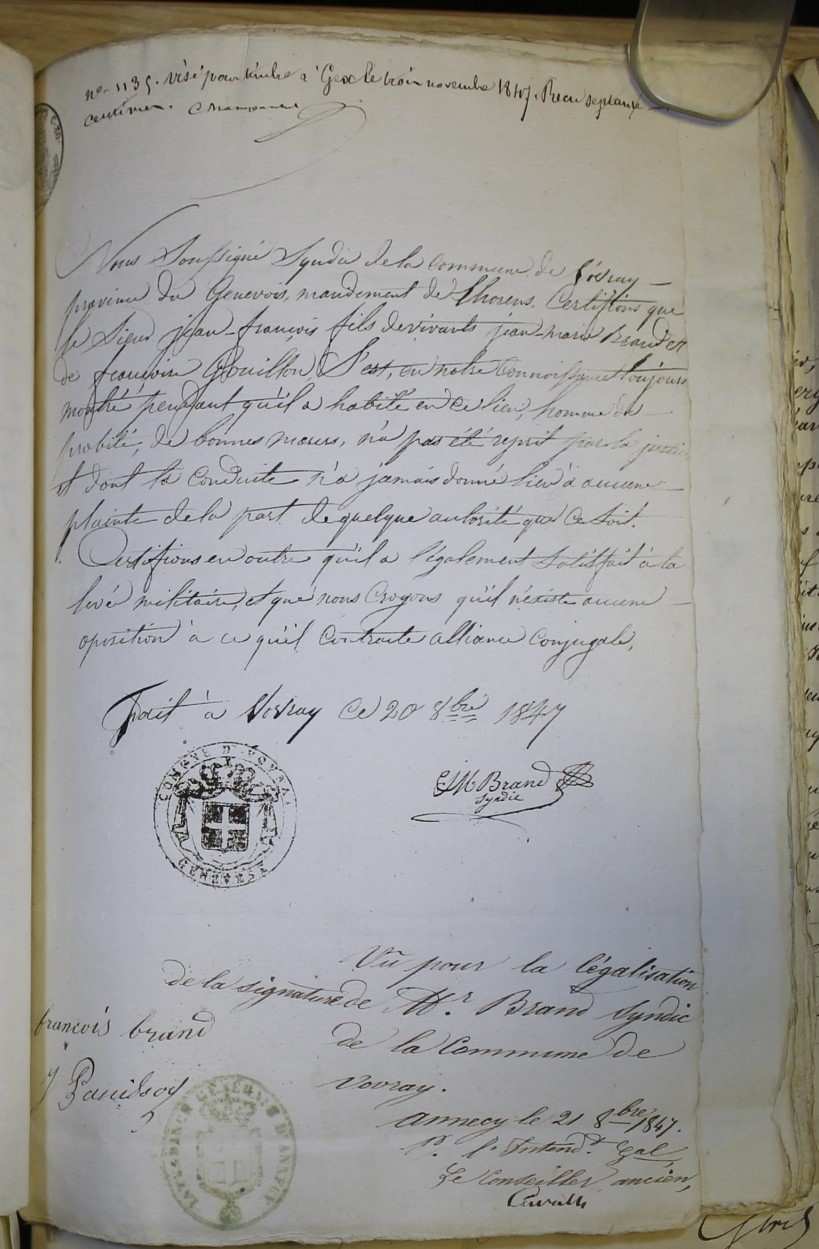 n° 1135. visé pour timbre à Gex le trois novembre 1847. Recu septante
centimes.
Nous Soussigné Syndic de la Commune de Vovray
province du Genevois, mandement de Thorens, Certifions que
le Sieur jean-françois fils de vivants jean-marie Brand et
de françoise Bouillon, S'est, en notre Connoissance toujours
montré pendant qu'il a habité en ce lieu, homme de
probité, de bonnes mœurs, n'a pas été reprit par la justice
et dont la Conduite n'a jamais donné lieu à aucune
plainte de la part de quelque autorité que ce soit.
Certifions en outre qu'il a légalement Satisfait à la
levé militaire, et que nous Croyons qu'il n'éxiste aucune
oposition à ce qu'il Contracte alliance Conjugale.
Fait à Vovray ce 20 8bre 1847
JM Brand
Syndic
COMUNE D VOVRAY
GENEVESE
Vu pour la légalisation
de la signature de Mr. Brand Syndic
de la Commune de
Vovray.
francois brand
annecy le 21 8bre 1847.
pr. l'Intendt. Gal,
Le Conseiller ancien,